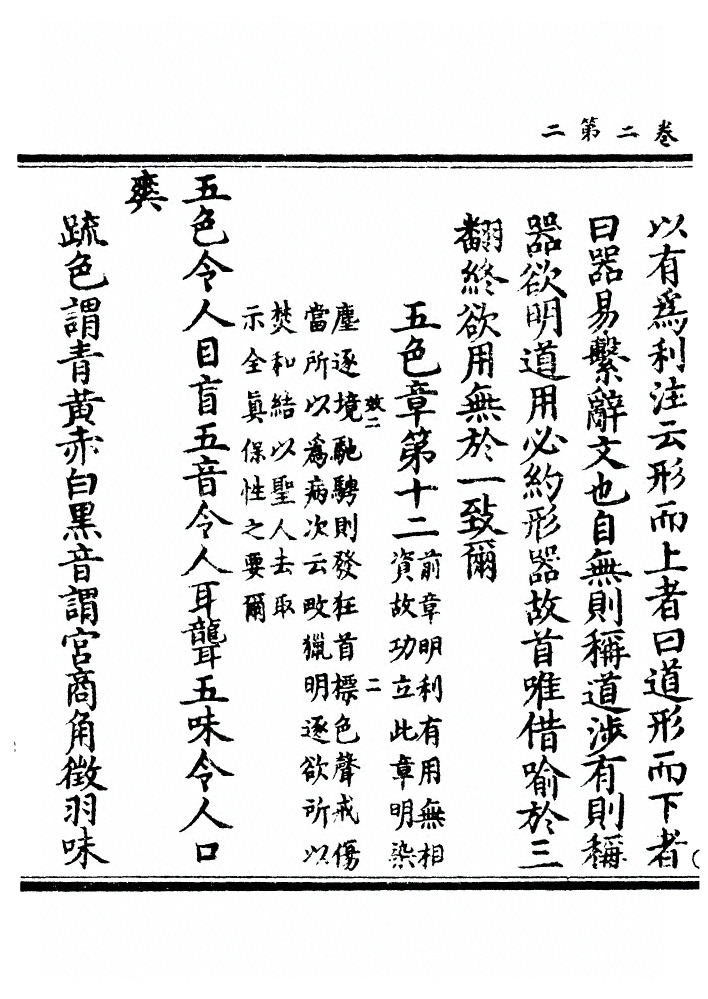 卷二第二
以有爲利注云形而上者曰道形而下者
曰器易繫辭文也自無則稱道涉有則稱
器欲明道用必約形器故首唯借喻於三
翻終欲用無於一致爾
五色章第十二
前章明利有用無相
資故功立此章明染
塵逐境馳騁則發狂首標色聲戒傷
當所以爲病次云畋獵明逐欲所以
焚和結以聖人去取
示全眞保性之要爾
效二
二
五色令人目盲五音令人耳聾五味令人口
爽
䟽色謂青黃赤白黑音謂宮商角徵羽味